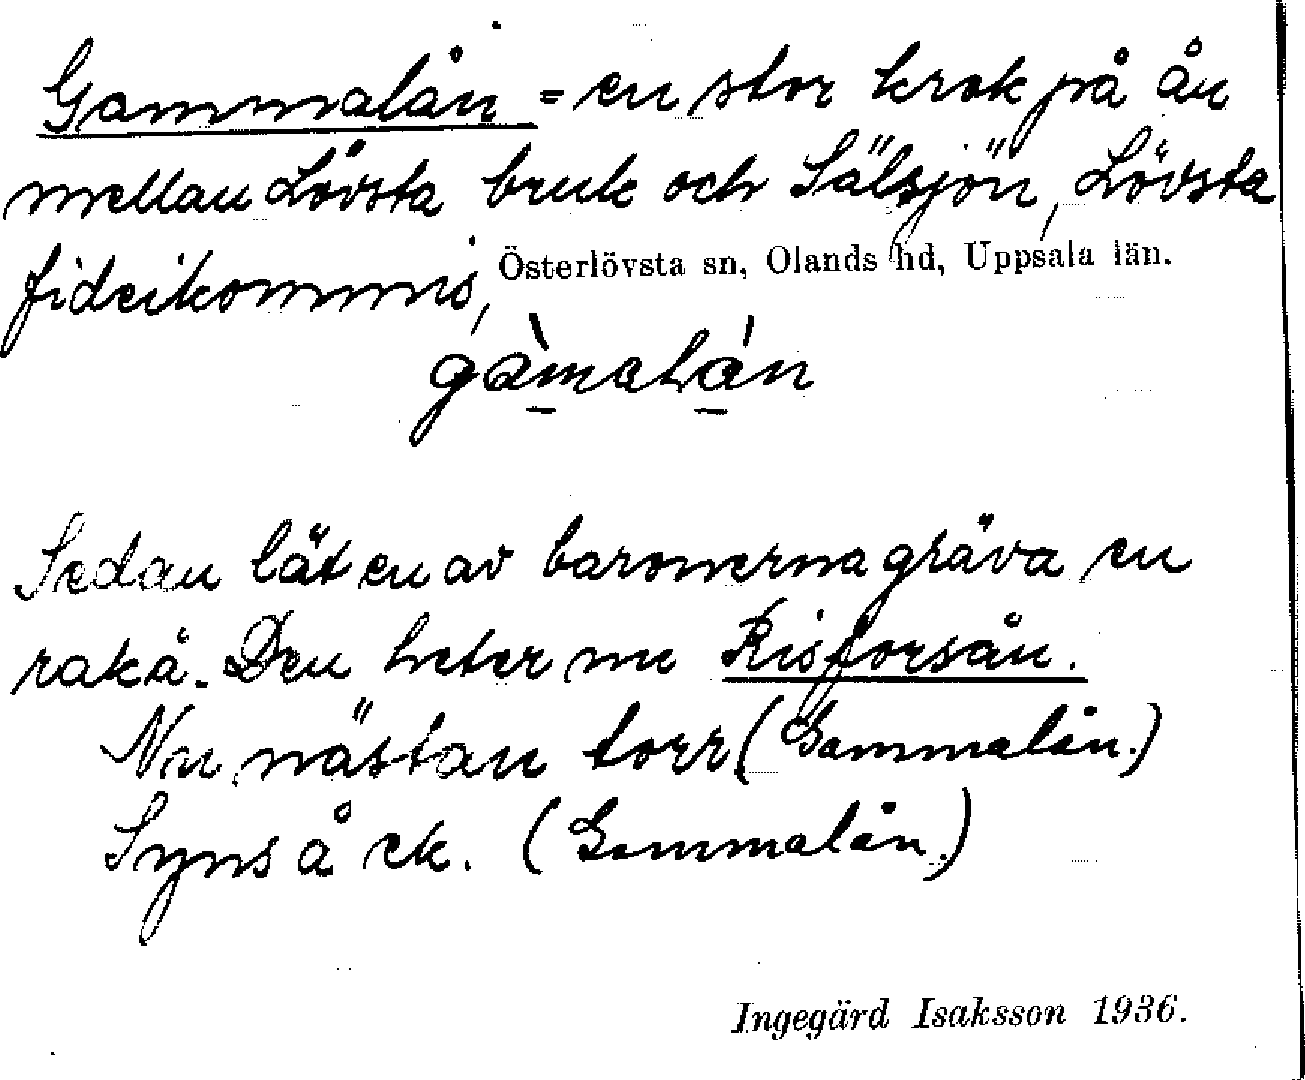 Gammalån = en stor krok på ån
mellan Lövsta bruk och Sälsjön, Lövsta
fideikommis, Österlövsta sn, Olands hd, Uppsala län.
gàmalán
Sedan lät en av baronerna gräva en
rak å. Den heter nu Risforsån.
Nu nästan torr (Gammalån.)
Syns å ek. (Gammalån.)
Ingegärd Isaksson 1936.